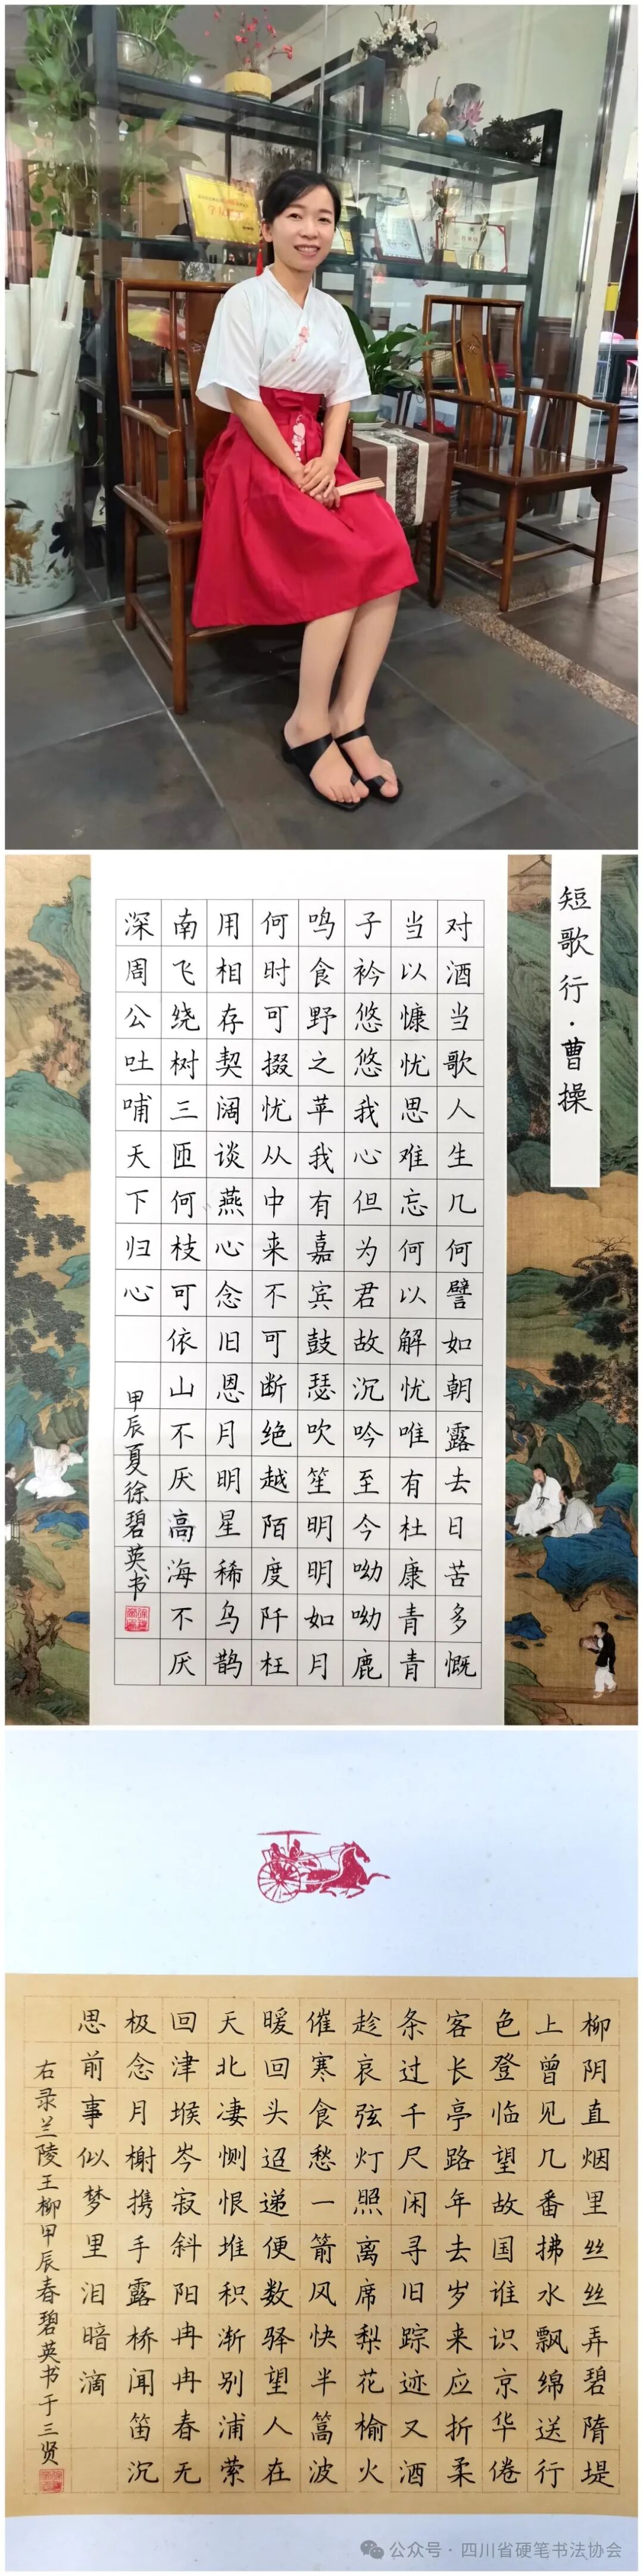 短歌行·曹操
对酒当歌人生几何譬如朝露去日苦多慨
当以慷忧思难忘何以解忧唯有杜康青青
子衿悠悠我心但为君故沉吟至今呦呦鹿
鸣食野之苹我有嘉宾鼓瑟吹笙明明如月
何时可掇忧从中来不可断绝越陌度阡枉
用相存契阔谈燕心念旧恩月明星稀乌鹊
南飞绕树三匝何枝可依山不厌高海不厌
深周公吐哺天下归心
甲辰夏徐碧英书
柳阴直烟里丝丝弄碧隋堤
上曾见几番拂水飘绵送行
色登临望故国谁识京华倦
客长亭路年去岁来应折柔
条过千尺闲寻旧踪迹又酒
趁哀弦灯照离席梨花榆火
催寒食愁一箭风快半篙波
暖回头迢递便数驿望人在
天北凄恻恨堆积渐别浦萦
回津堠岑寂斜阳冉冉春无
极念月榭携手露桥闻笛沉
思前事似梦里泪暗滴
右录兰陵王柳甲辰春碧英书于三贤
公众号·四川省硬笔书法协会